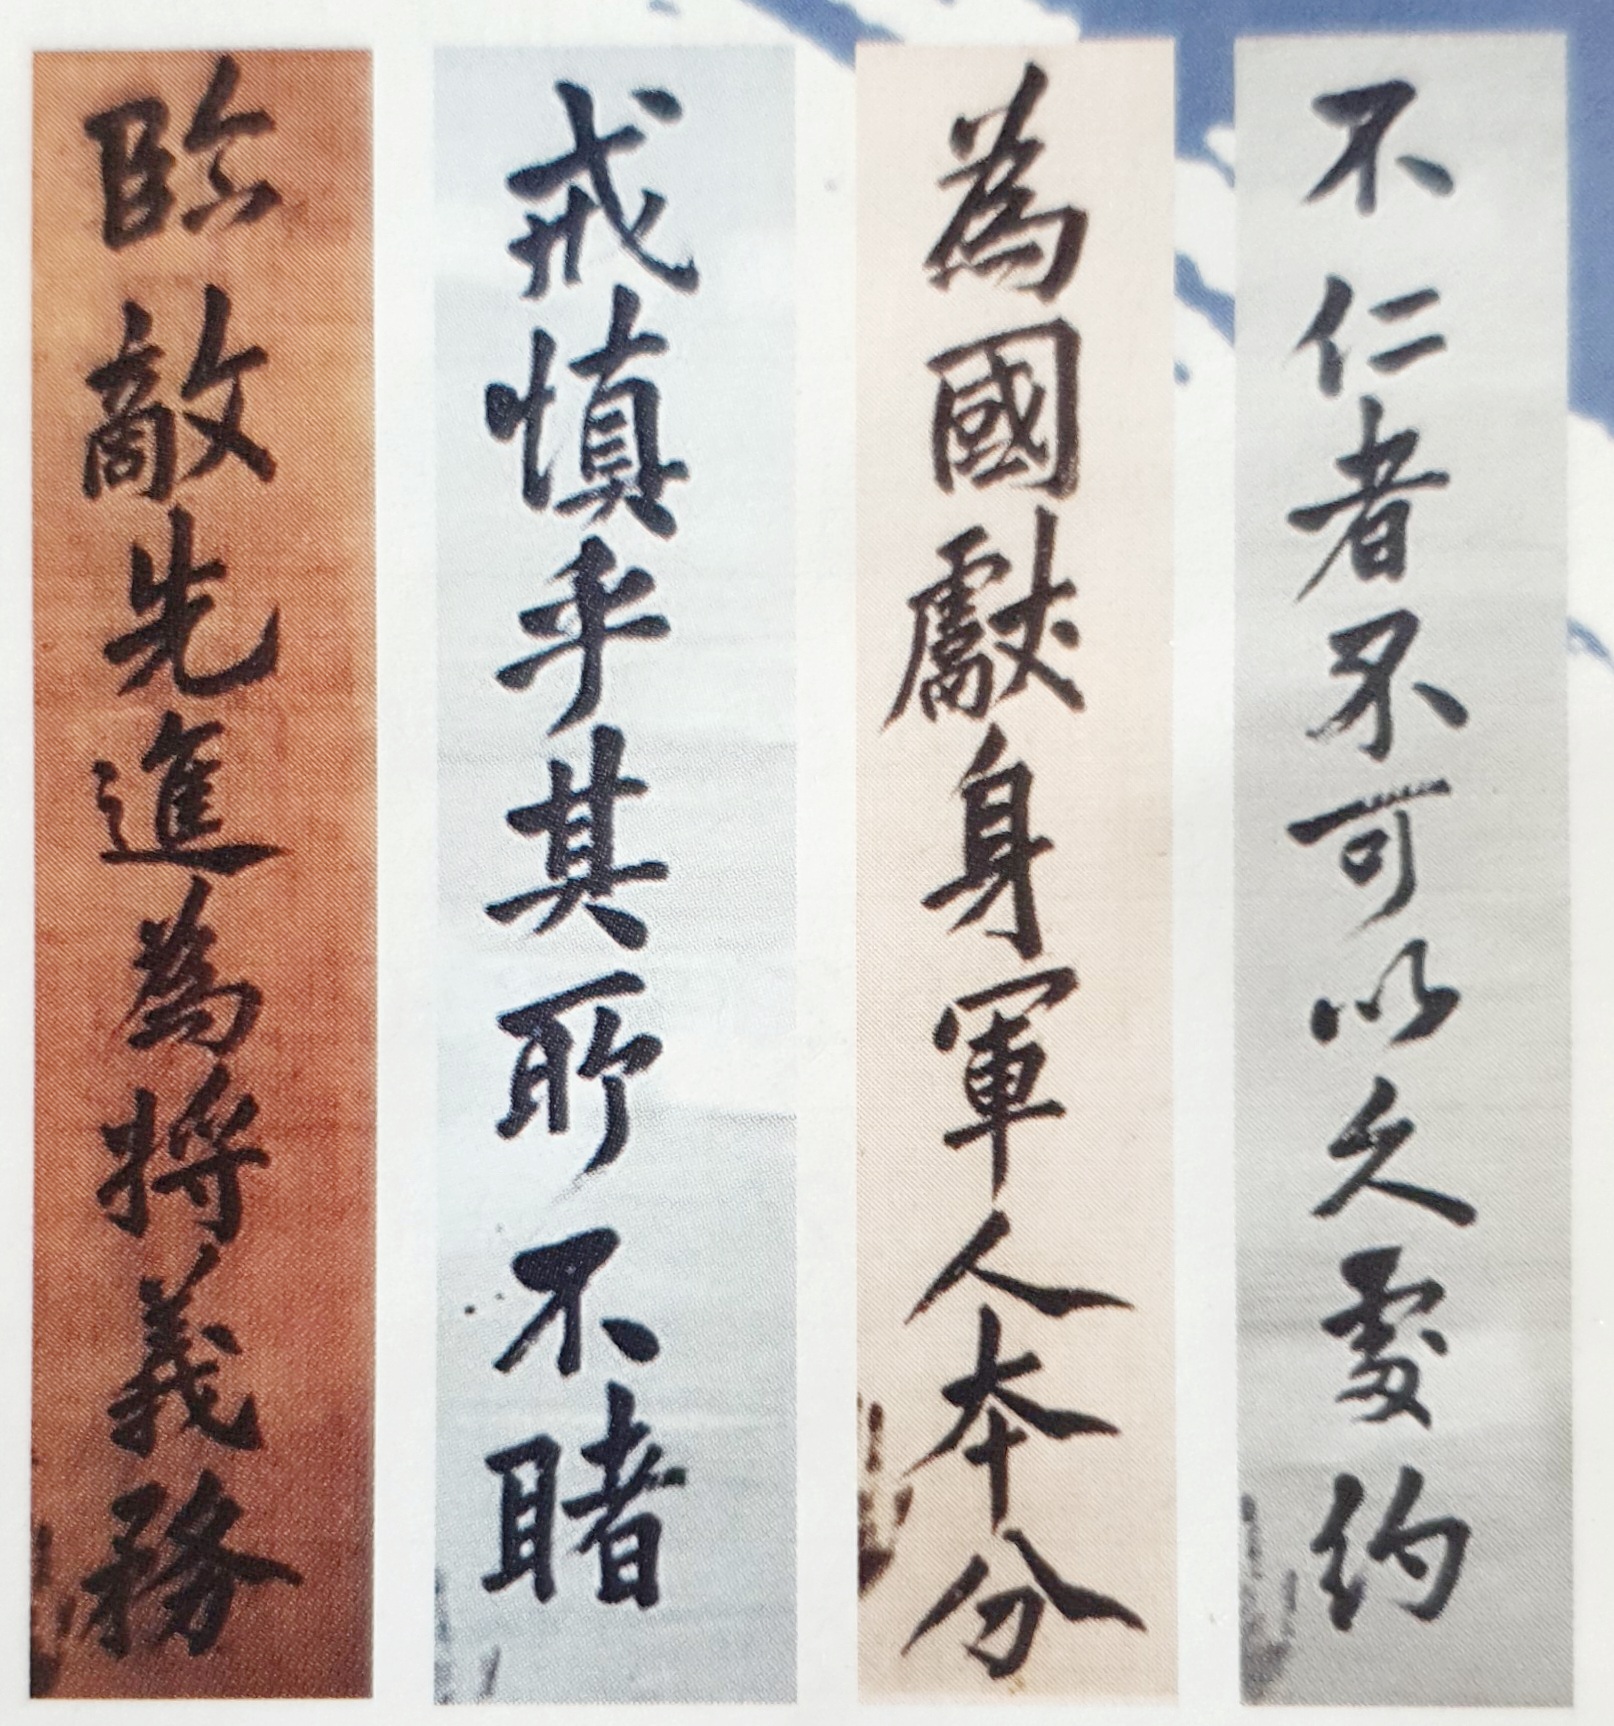 不仁者不可以久處約
為國獻身軍人本分
戒慎乎其所不睹
臨敵先進為將義務